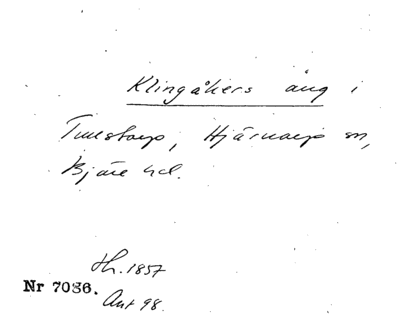 Klingåkers äng i
Tunstorp, Hjärnarp sn,
Bjäre hd.
Hr. 1857
Nr 7036.
Ant 98.